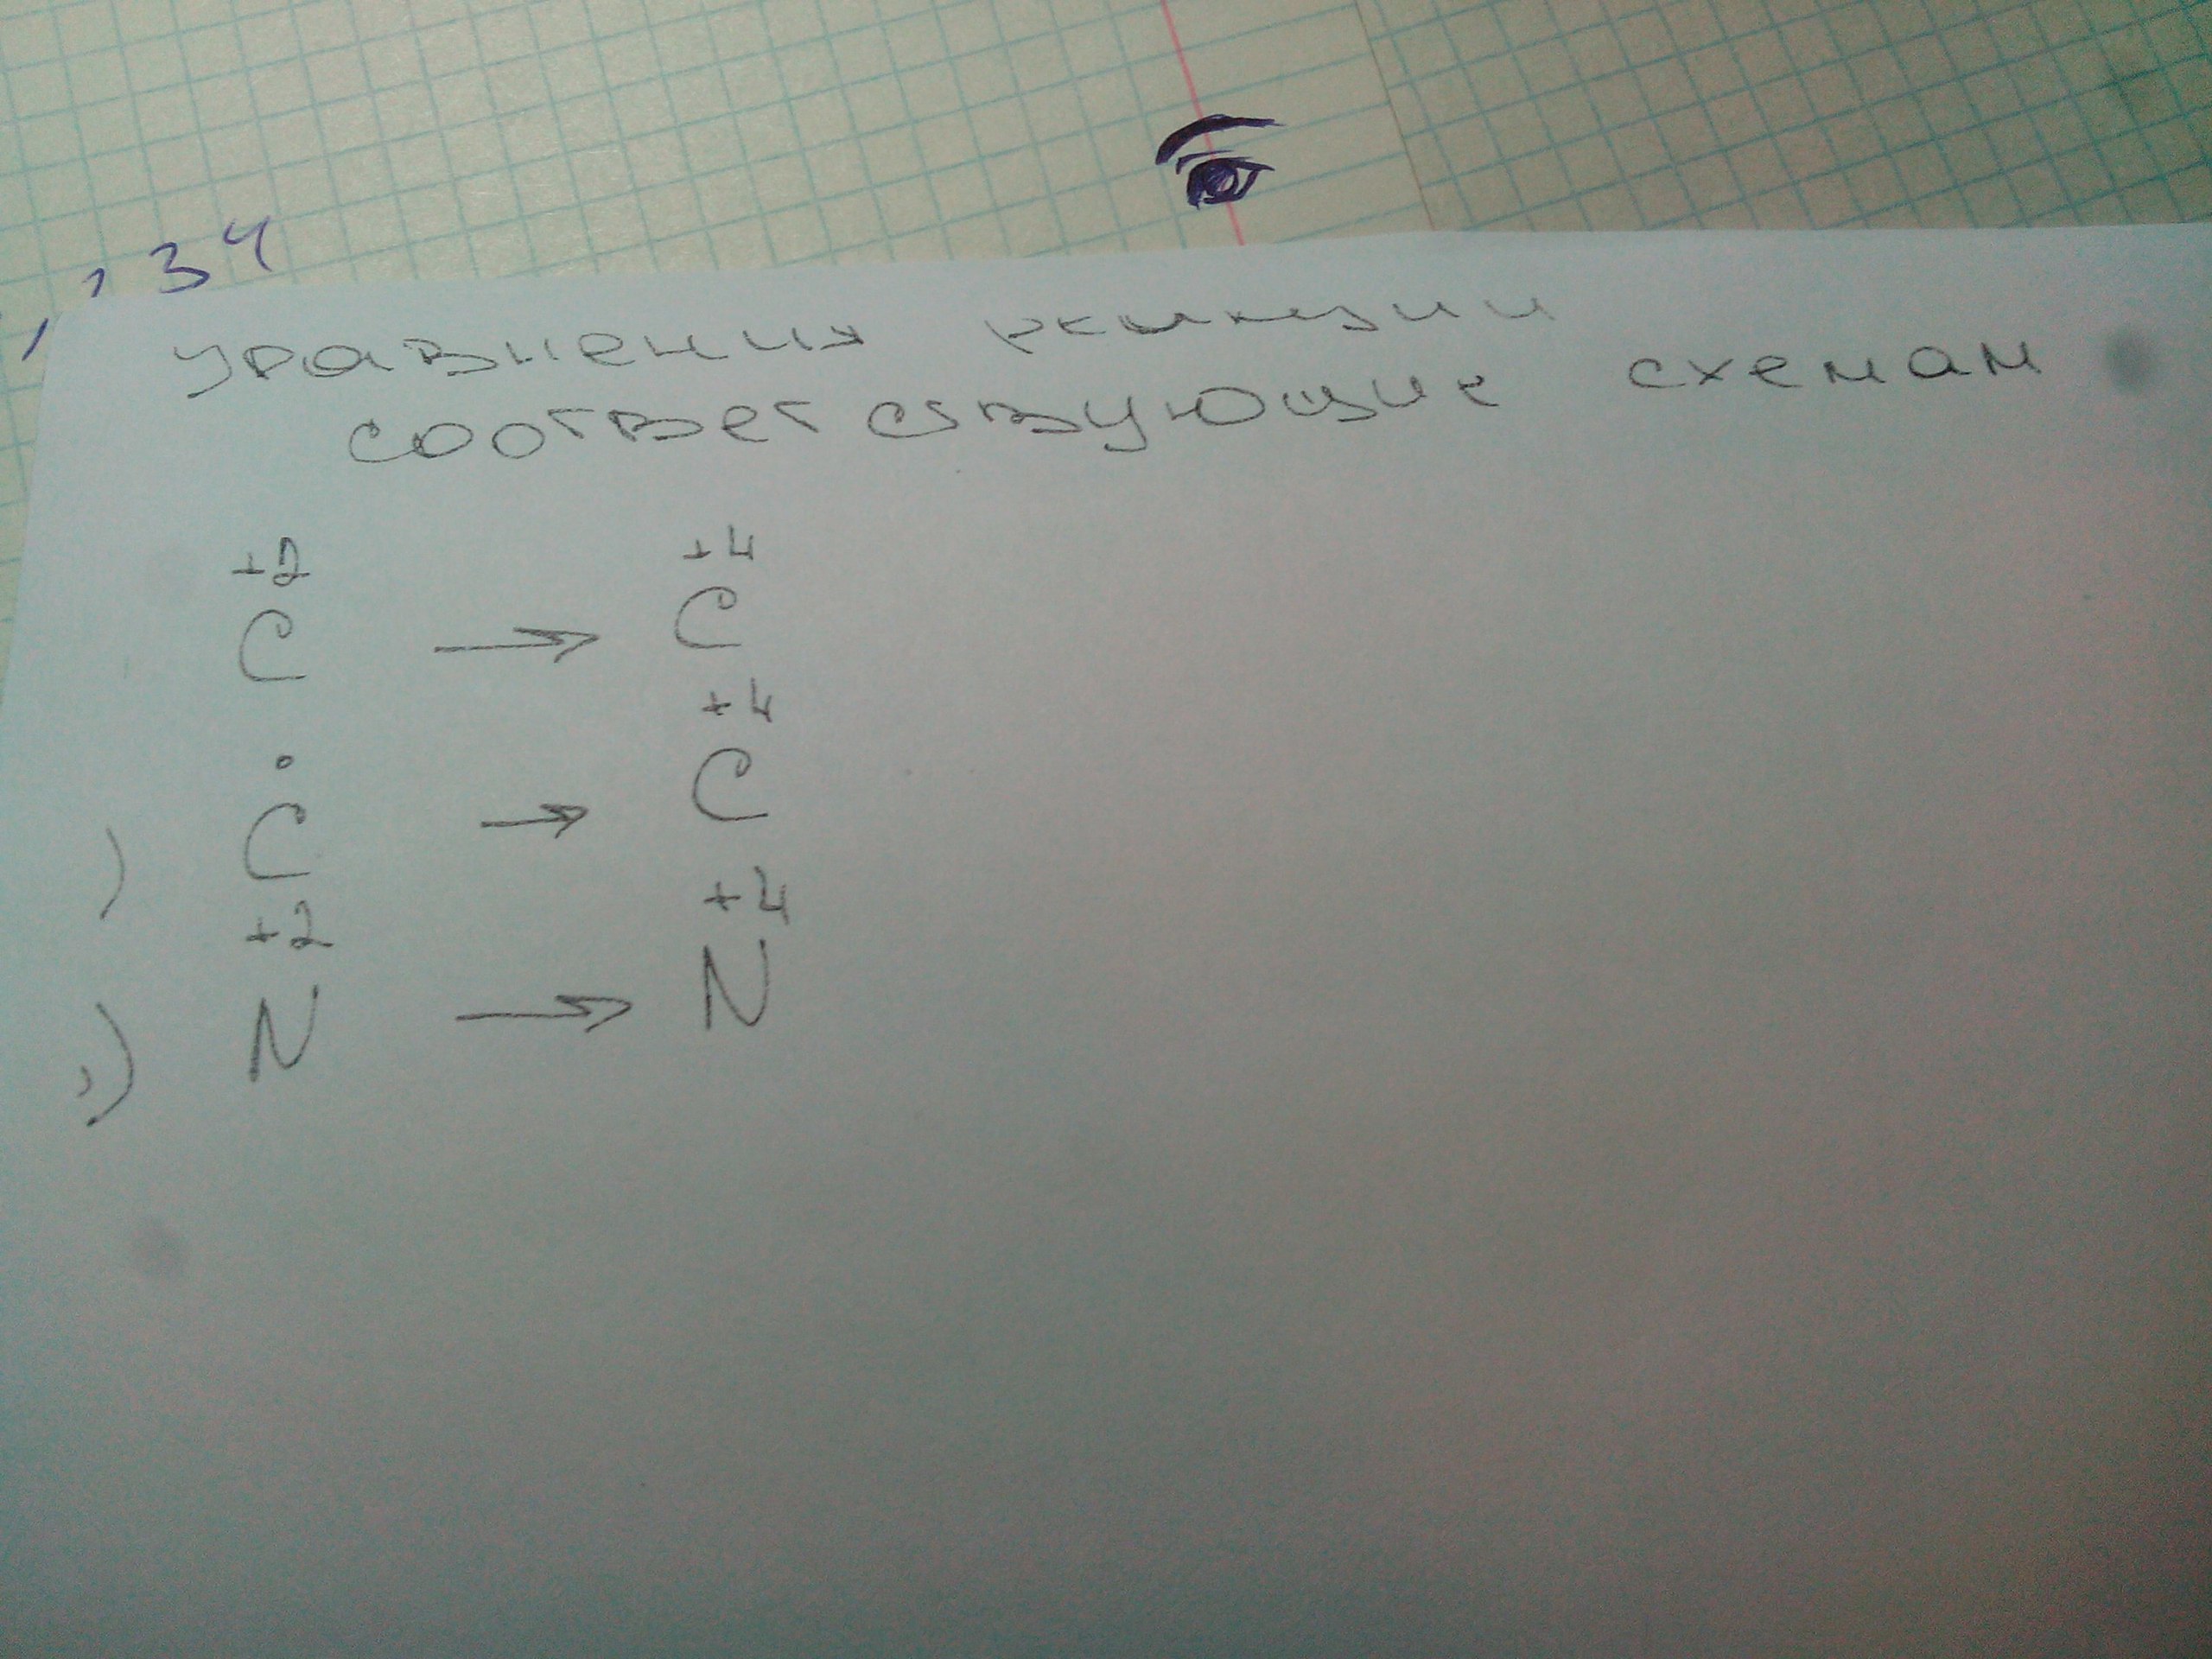 , 34
уравнения реакции
соответствующие схемам
+2 +4
C → C
0 +4
) C → C
+2 +4
) N → N